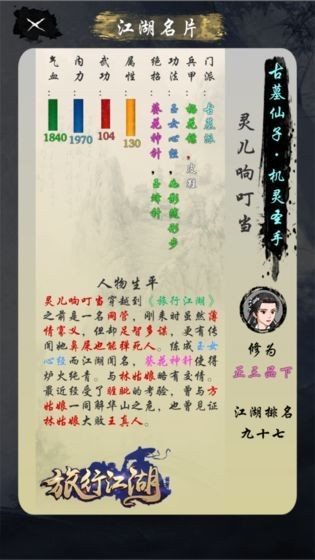 江湖名片
古墓仙子·机灵圣手
灵儿响叮当
门派：古墓派
兵甲：
功法：玉女心经，
绝招：葵花神针，
属性：
130
武功：
104
内力：
1970
气血：
1840
人物生平
灵儿响叮当穿越到《旅行江湖》
之前是一名网管，刚来时虽然薄
情寡义，但却足智多谋，更有传
闻她鼻屎也能弹死人。练成玉女
心经而江湖闻名，葵花神针使得
炉火纯青。与林姑娘略有交情。
最近经受了胜败的考验，曾与方
姑娘一同解华山之危，也曾见证
林姑娘大败王真人。
修为
正三品下
江湖排名
九十七
旅行江湖